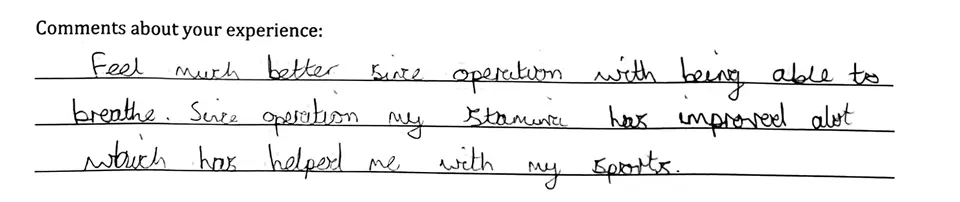 Comments about your experience:
Feel much better since operation with being able to
breathe. Since operation my stamina has improved alot
which has helped me with my sports.